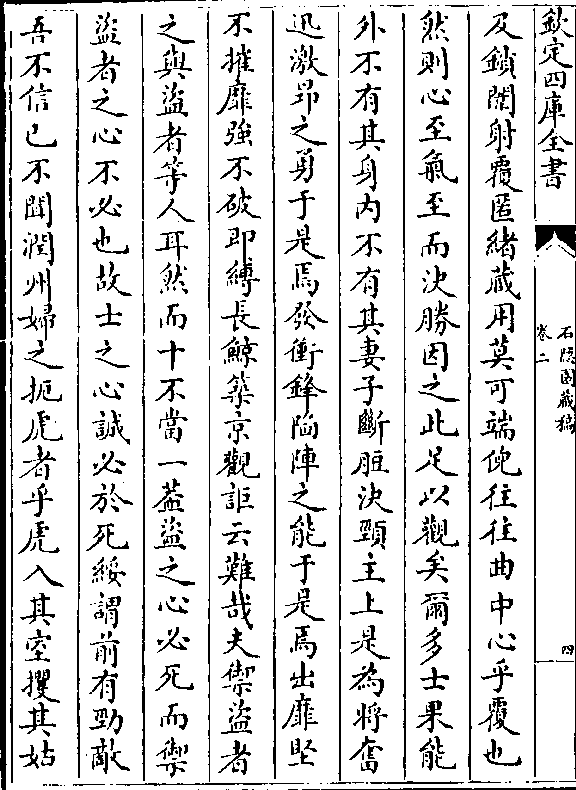 欽定四庫全書
石隱園藏稿
卷二
四
及鎖闈射覆匿緒藏用莫可端倪往往曲中心乎覆也
然則心至氣至而決勝因之此足以觀矣爾多士果能
外不有其身內不有其妻子斷脰決頸主上是為將奮
迅激昂之勇于是焉發衝鋒陷陣之能于是焉出靡堅
不摧靡強不破即縛長鯨築京觀詎云難哉夫禦盜者
之與盜者等人耳然而十不當一葢盜之心必死而禦
盜者之心不必也故士之心誠必於死綏謂前有勁敵
吾不信已不聞潤州婦之扼虎者乎虎入其室攫其姑